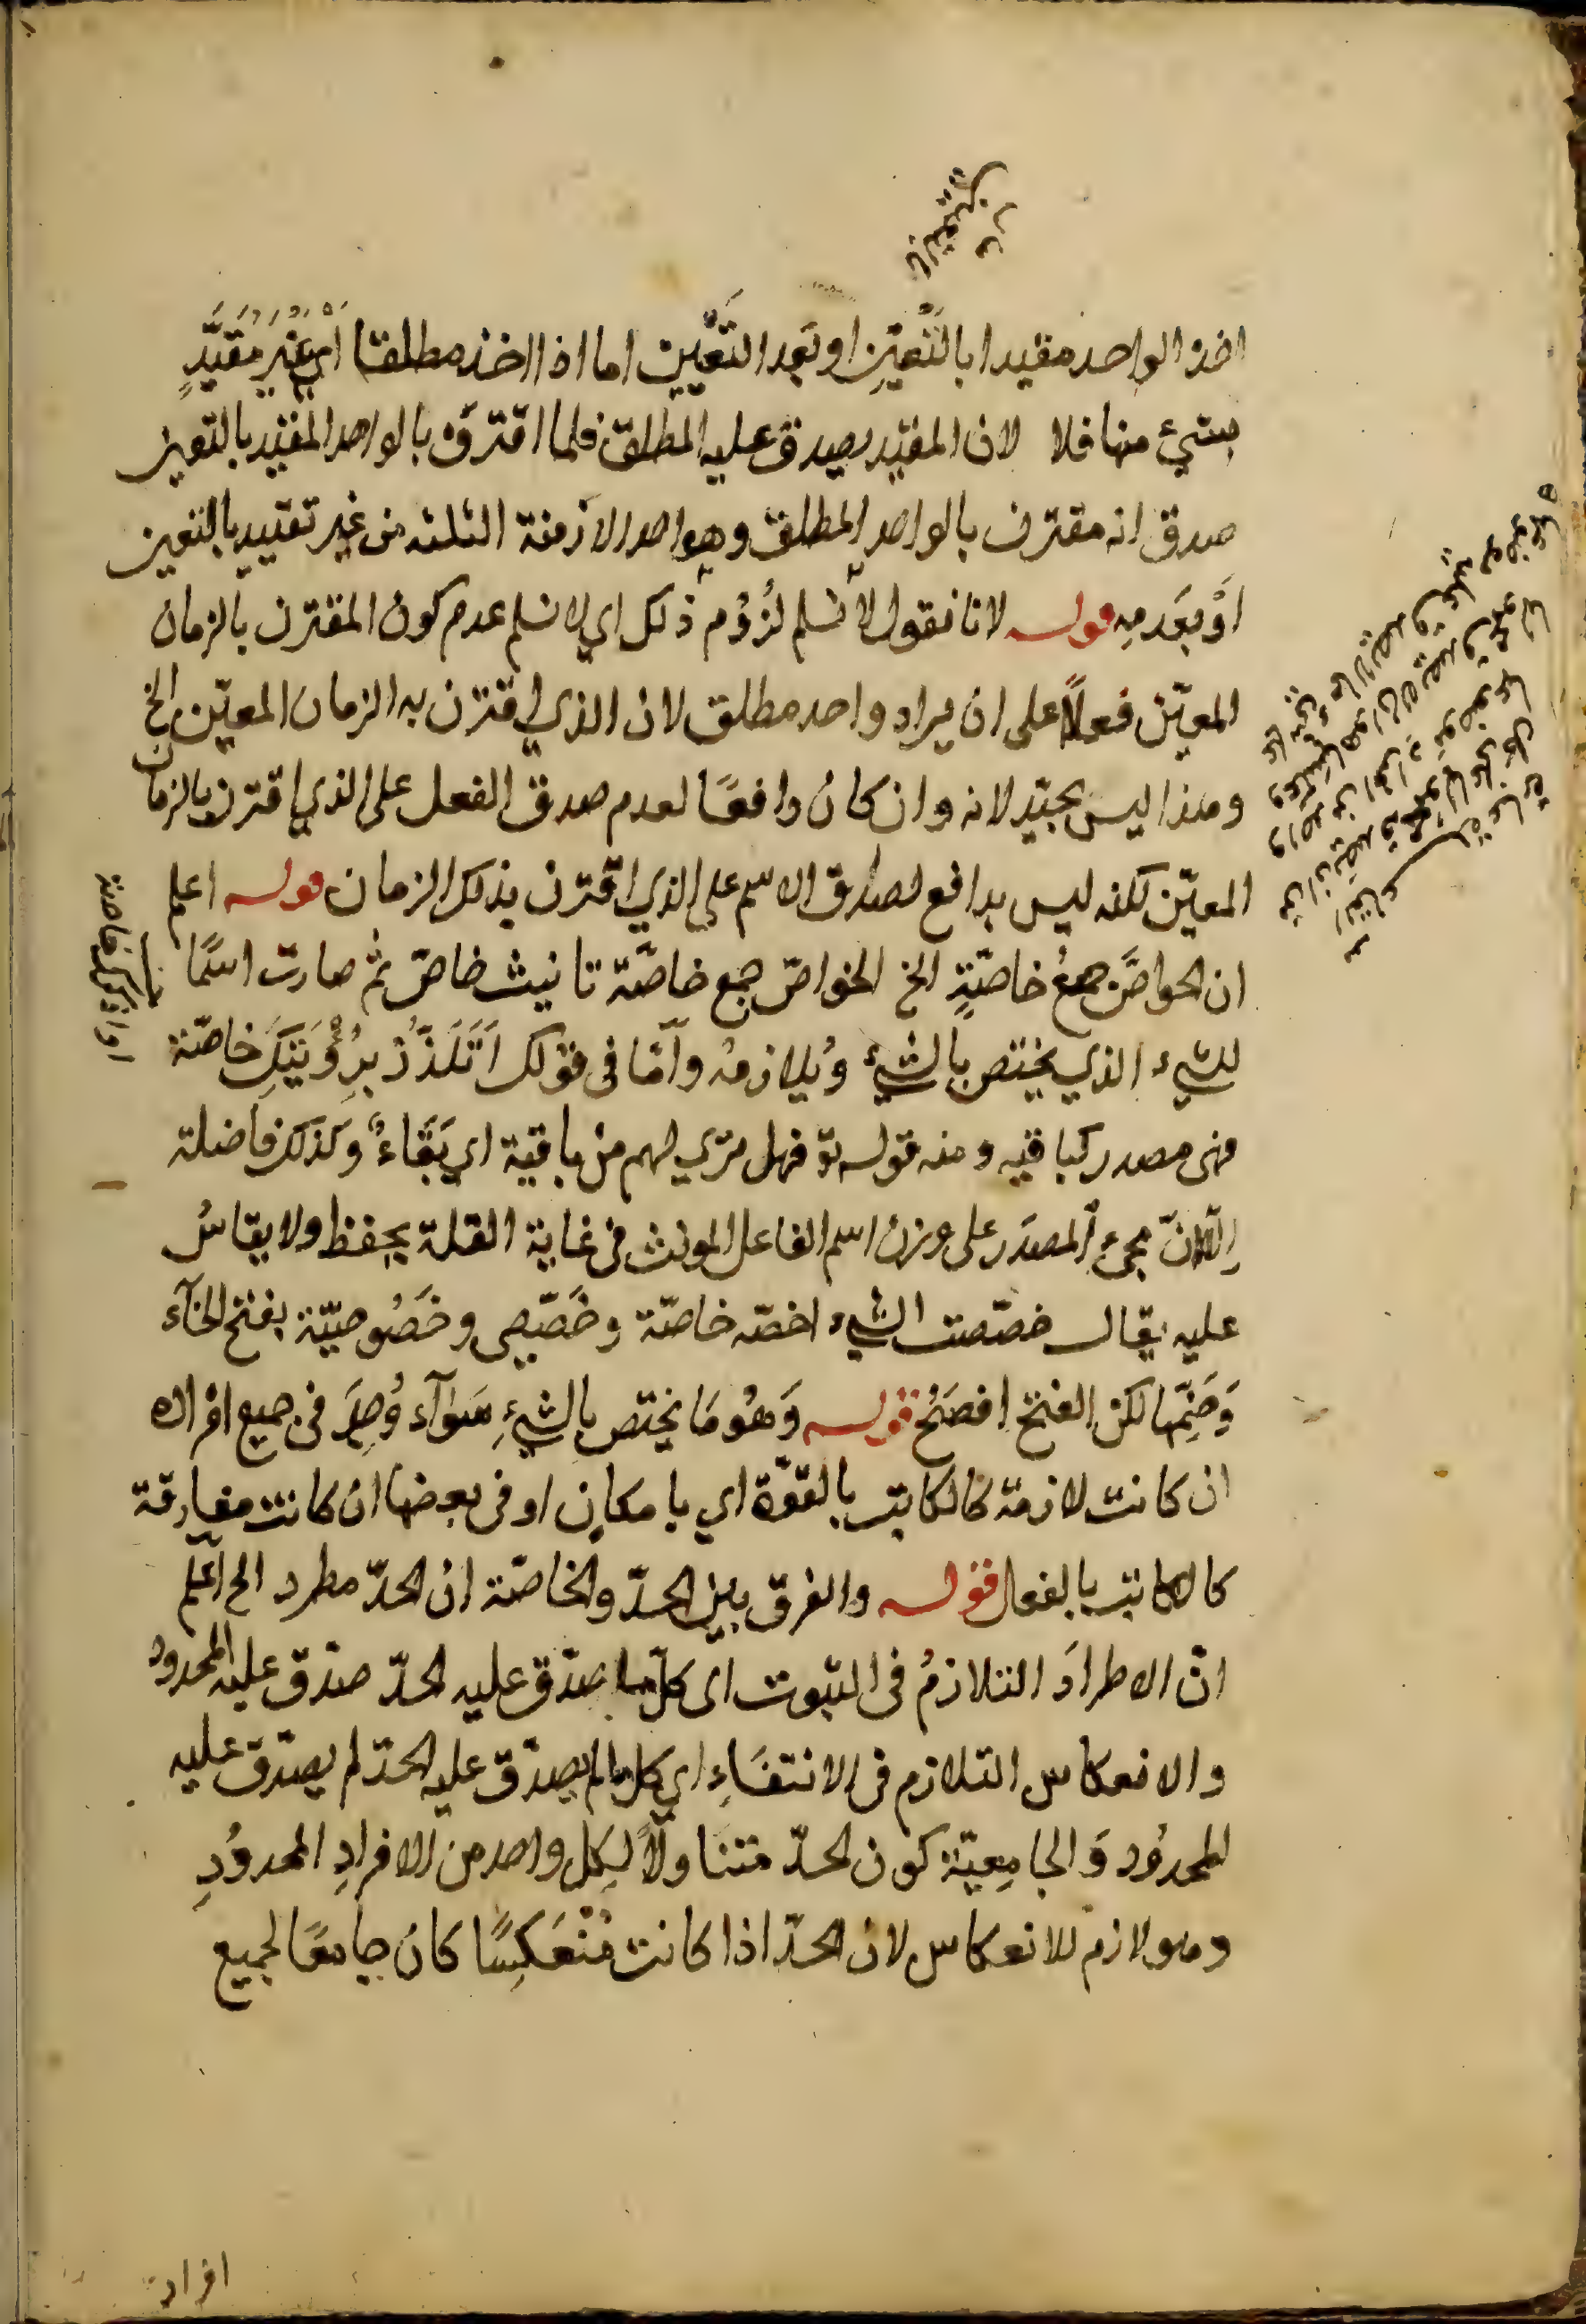 اخذ الواحد مقيدا بالتَّعيّنِ او بَعدِ التَّعيّينِ اما اذا اخذ مطلقا اَيْ غَيْرَ مُقَيَّدٍ
بشيء منها فلا لان المقيّد يصدق عليه المطلق فلما اقترن بالواحد المقيد بالتعين
صدق انه مقترن بالواحد المطلق وهو احد الازمنة الثلثه من غير تقييد بالتعين
اَوْ بَعَدمِهِ قوله لانا نقول لا نسلم لُزُوم ذلك اي لا نسلم عدم كون المقترن بالزمان
المعيّن فعلاً على ان يراد واحد مطلق لان الذي اقترن به الزمان المعيّن الخ
وهذا ليس بجيّد لانه وان كان دافعًا لعدم صدق الفعل على الذي اقترن بالزمان
المعيّن لكنه ليس بدافع لصدق الاسم على الذي اقترن بذلك الزمان قوله اعلم
ان الخواصَّ جمعُ خاصّةٍ الخ الخواصّ جمع خاصّة تانيث خاصّ ثم صارت اسمًا
للشيء الذي يختص بالشيءِ وُيلازمُه واَمّا فى قولك اَتَلَذَّذُ بِرُؤْيَتِكَ خاصّة
فهى مصدر كباقيه ومنه قوله تع فهل ترَي لهم من باقية اي بَقَاءٌ وكذلك فاضلة
اِلّا انّ مجئ المصدَر على وزن اسم الفاعل المونث فى غاية القلة يحفظ ولا يقاسُ
عليه يقال خصّصت الشيء اخصّه خاصّة وخَصّيصى وخَصُوصيّة بفتح الخآء
وَضَمِّها لكن الفتح افصَحُ قوله وَهُو مَا يختص بالشيءِ سَوآء وُجِدَ فى جميع افراده
ان كانت لازمة كالكاتب بالقوّة اي بامكانٍ او فى بعضها ان كانت مفارقة
كالكاتب بالفعل قوله والفرق بين الحدّ والخاصّة ان الحدّ مطرد الخ اَعْلم
انّ الاطرادَ التلازمُ فى الثبوت اى كلّ ما صدَق عليه الحدّ صدَق عليه المحدود
والانعكاس التلازم فى الانتفَاءِ اي كل ما لم يصدَق عليه الحدّ لم يصدَق عليه
المحدُود وَالجامِعيّة كون الحدّ متناولاً لِكل واحد من الافرادِ المحدوُدِ
وهو لازم للانعكاس لان الحدّ اذا كانت مُنْعَكِسًا كان جامعًا لجميع
افراد